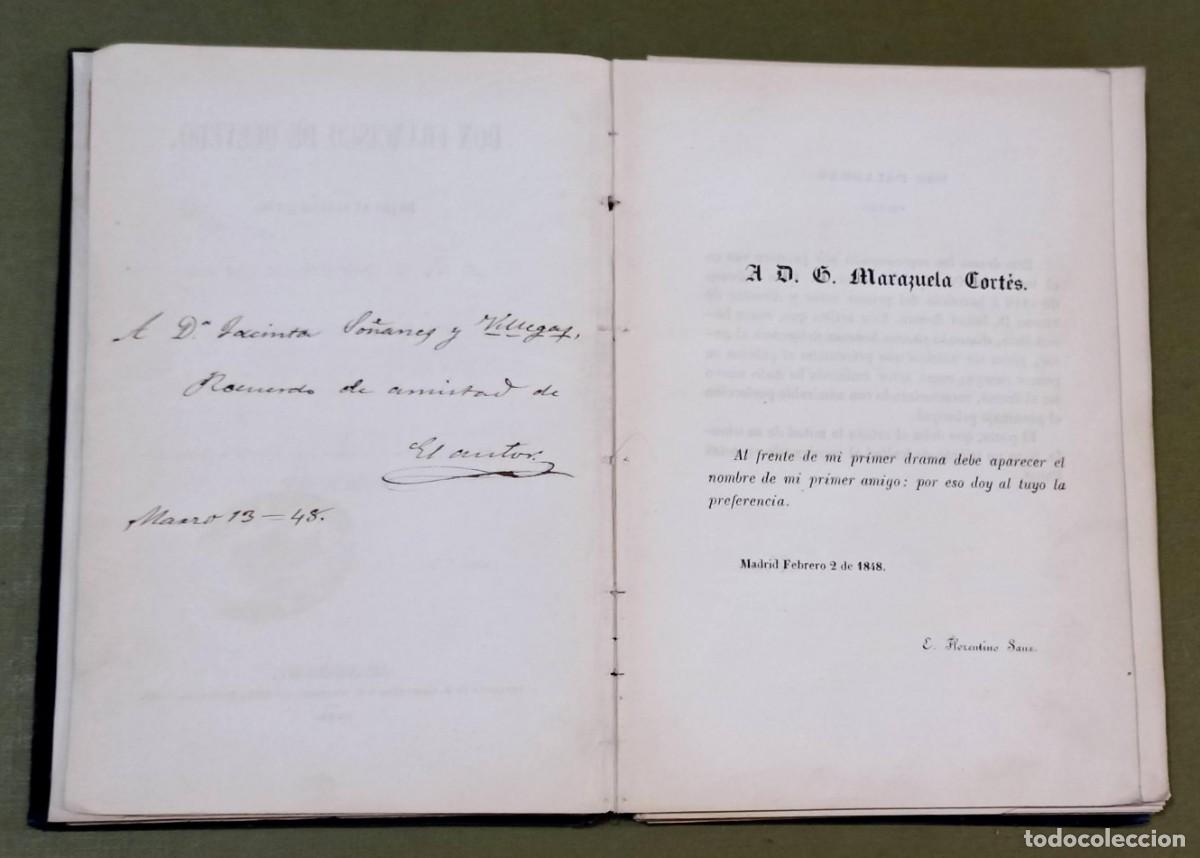 A Dª Jacinta Soñanes y Villegas,
Recuerdo de amistad de
El autor.
Marzo 13 = 48.
A D. G. Marazuela Cortés.
Al frente de mi primer drama debe aparecer el
nombre de mi primer amigo: por eso doy al tuyo la
preferencia.
Madrid Febrero 2 de 1848.
E. Florentino Sanz.
todocoleccion